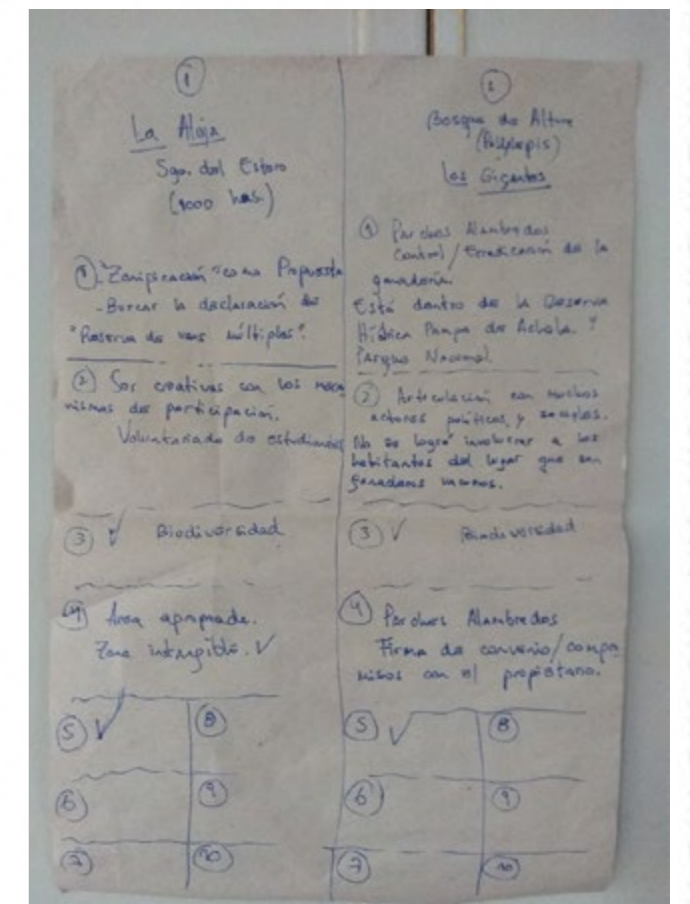 1
La Aloja
Sgo. del Estero
(1000 has.)
1 "Zonificación" como Propuesta
- Buscar la declaración de
"Reserva de usos múltiples".
2 Ser creativas con los meca
nismos de participación.
Voluntariado de estudiantes
3 ✓ Biodiversidad
4 Area apropiada.
Zona intangible. ✓
5 ✓ 8
6 9
7 10
2
Bosque de Altura
(Polylepis)
Los Gigantes
1 Parches Alambrados
Control / Erradicación de la
ganadería.
Está dentro de la Reserva
Hídrica Pampa de Achala. ?
Parque Nacional.
2 Articulación con muchos
actores políticos y sociales.
No se logró involucrar a los
habitantes del lugar que son
ganaderos
3 ✓ Biodiversidad
4 Parches Alambrados
Firma de convenio/compo
misos con el propietario.
5 ✓ 8
6 9
7 10